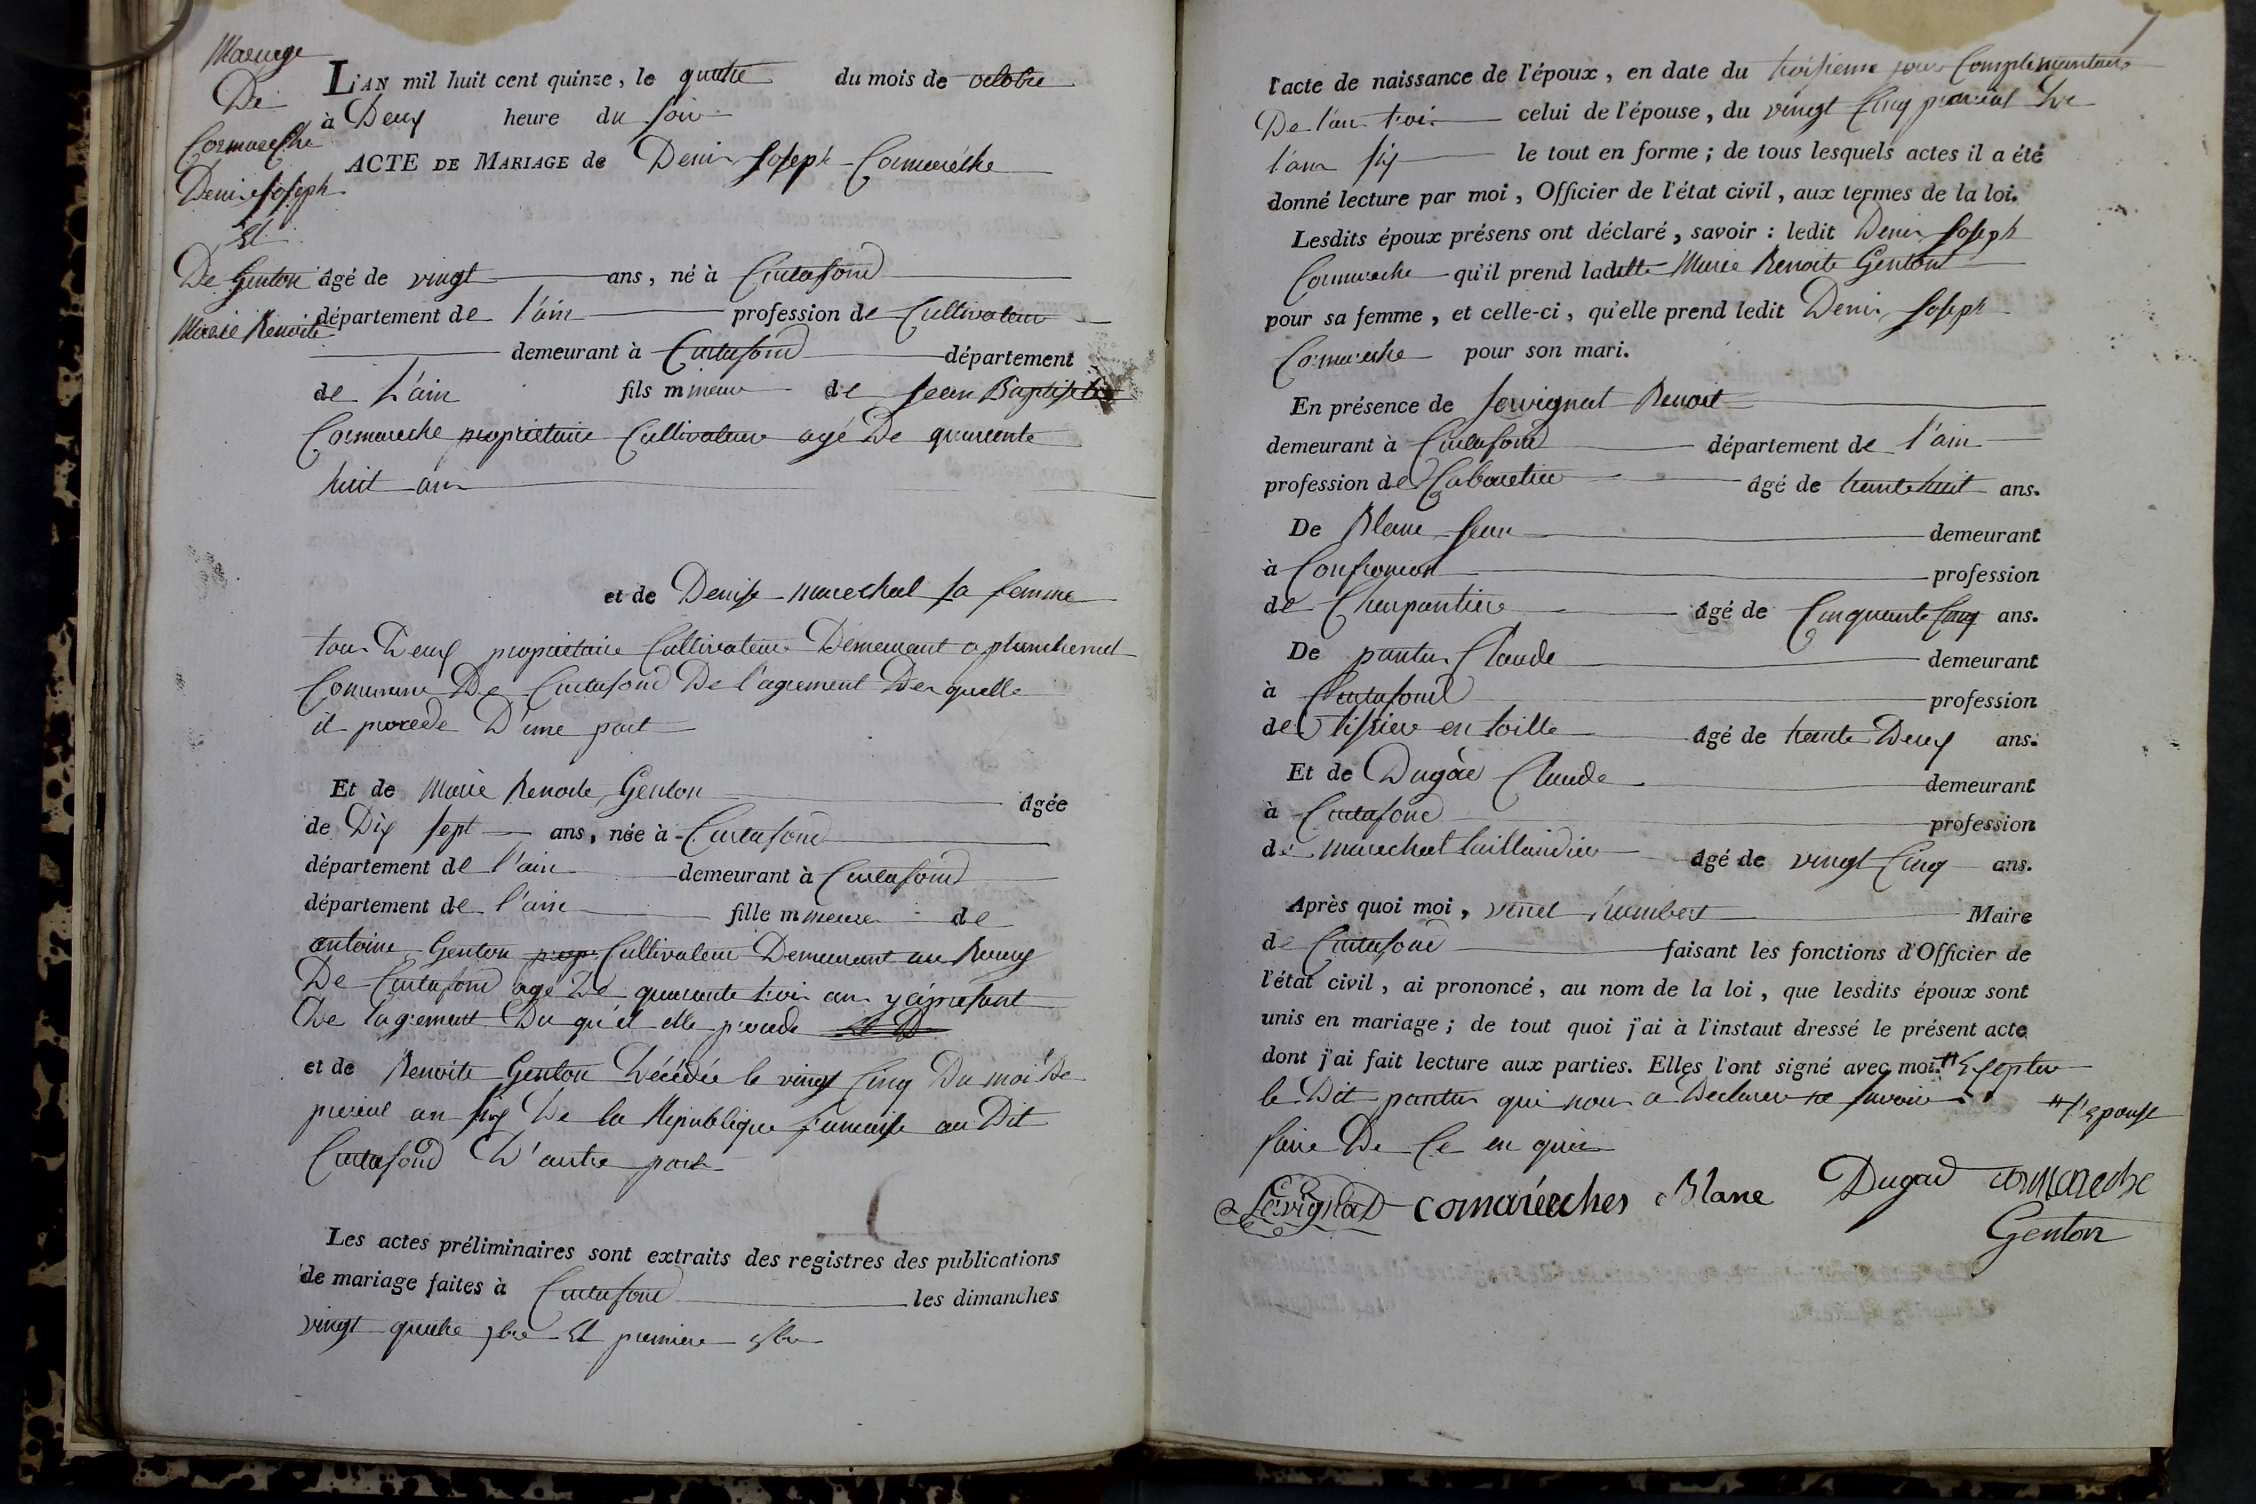 Mariage
De
Cormareche
Denis Joseph
Et
De Genton
Marie Benoite
L'AN mil huit cent quinze, le quatre du mois de octobre
à Deux heure du soir
ACTE DE MARIAGE de Denis Joseph Cormarêche
âgé de vingt ans, né à Curtafond
département de l'ain profession de Cultivateur
demeurant à Curtafond département
de L'ain fils mineur de Jean Baptiste
Cormareche propriétaire Cultivateur agé De quarente
huit ans
et de Denise marechal sa femme
tous Deux propriétaire Cultivateurs Demeurant a
Commune De Curtafond De l'agrement Des quelle
il procede D'une part
Et de Marie Benoite Genton âgée
de Dix sept ans, née à Curtafond
département de l'ain demeurant à Curtafond
département de l'ain fille mineure de
antoine Genton prop Cultivateur Demeurant au
De Curtafond agé De quarante trois ans y présent
De lagrement Du quel elle procede
et de Benoite Genton Décédée le vingt Cinq Du mois De
prerial an six De la Republique francaise au Dit
Curtafond D'autre part
Les actes préliminaires sont extraits des registres des publications
de mariage faites à Curtafond les dimanches
vingt quatre 7bre Et premiere 8bre
7
l'acte de naissance de l'époux, en date du troisieme jour Complementaire
De l'an trois celui de l'épouse, du vingt Cinq prairial De
l'an six le tout en forme; de tous lesquels actes il a été
donné lecture par moi, Officier de l'état civil, aux termes de la loi.
Lesdits époux présens ont déclaré, savoir: ledit Denis Joseph
Cormareche qu'il prend ladite Marie Benoite Genton
pour sa femme, et celle-ci, qu'elle prend ledit Denis Joseph
Cormareche pour son mari.
En présence de Servignat Benoit
demeurant à Curtafond département de l'ain
profession de Cabaretier âgé de trente huit ans.
De Blanc Jean demeurant
à Confrancon profession
de Charpantier âgé de Cinquante Cinq ans.
De pantin Claude demeurant
à Curtafond profession
de tissier en toille âgé de trente Deux ans.
Et de Claude demeurant
à Curtafond profession
de marechal taillandier âgé de vingt Cinq ans.
Après quoi moi, humbert Maire
de Curtafond faisant les fonctions d'Officier de
l'état civil, ai prononcé, au nom de la loi, que lesdits époux sont
unis en mariage; de tout quoi j'ai à l'instaut dressé le présent acte
dont j'ai fait lecture aux parties. Elles l'ont signé avec moi. Exepter
le Dit pantin qui nous a Declarer ne savoir
l'Epouse
faire De Ce en quis
Servignat comaréaches Blanc Dugad cormareche
Genton